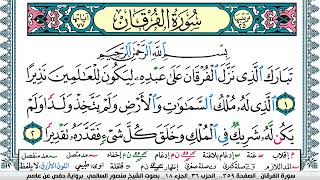 سورة الفرقان
بِسْمِ اللَّهِ الرَّحْمَٰنِ الرَّحِيمِ
تَبَارَكَ الَّذِي نَزَّلَ الْفُرْقَانَ عَلَىٰ عَبْدِهِ لِيَكُونَ لِلْعَالَمِينَ نَذِيرًا
١ الَّذِي لَهُ مُلْكُ السَّمَاوَاتِ وَالْأَرْضِ وَلَمْ يَتَّخِذْ وَلَدًا وَلَمْ
يَكُن لَّهُ شَرِيكٌ فِي الْمُلْكِ وَخَلَقَ كُلَّ شَيْءٍ فَقَدَّرَهُ تَقْدِيرًا ٢
سورة الفرقان - الصفحة ٣٥٩ - الحزب ٣٦ - الجزء ١٨ - بصوت الشيخ منصور السالمي - برواية حفص عن عاصم